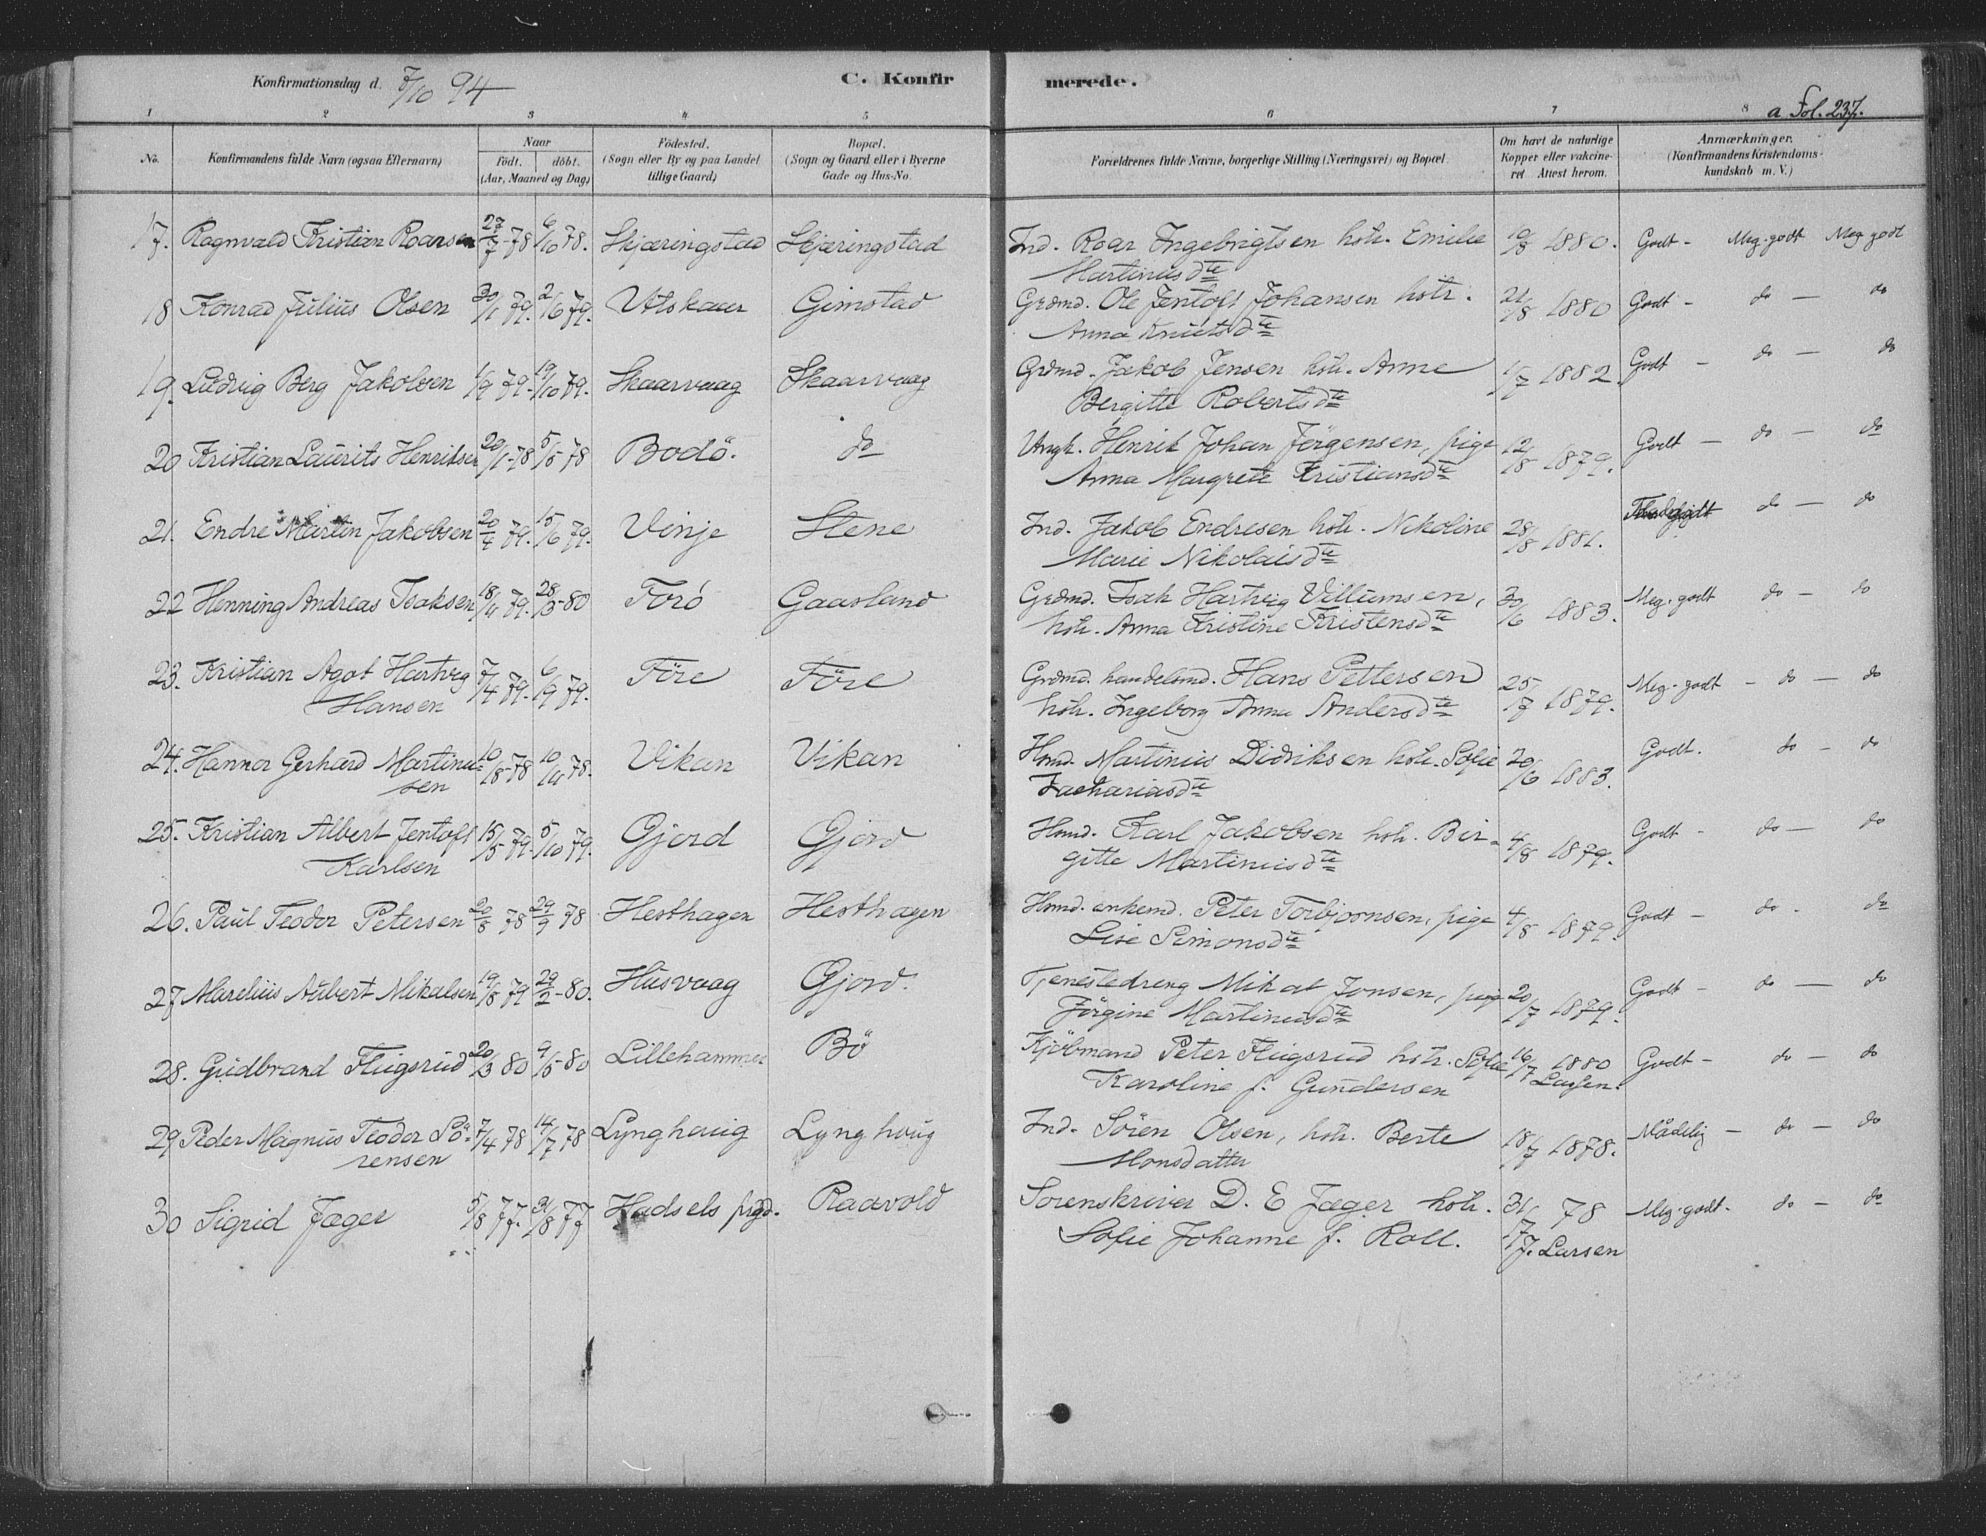 Konfirmationsdag d. 7/10 94
C. Konfirmerede.
a Fol. 237.
1 2 3 4 5 6 7 8
No. Konfirmandens fulde Navn (ogsaa Efternavn) Naar født. døbt. (Aar, Maaned og Dag) Födested. (Sogn eller By og paa Landet tillige Gaard) Bopæl. (Sogn og Gaard eller i Byerne Gade og Hus-No. Forældrenes fulde Navne, borgerlige Stilling (Næringsvei) og Bopæl. Om havt de naturlige Kopper eller vakcineret Attest herom. Anmærkninger. (Konfirmandens Kristendomskundskab m. V.)
17. Ragnvald Kristian Roarsen 27/7-78 6/10 78. Skjæringstad Skjæringstad Ind. Roar Ingebrigtsen hstr. Emilie 19/8 1880. Godt - Meg. godt Meg godt
Martinusdte
18 Konrad Julius Olsen 30/1 79. 2/6 79. Utskaar Gimstad Grdmd. Ole Jentoft Johansen hstr. 21/8 1880 Godt - do - do
Anna Knutsdte
19. Ludvig Berg Jakobsen 1/9 79. 19/10 79. Skaarvaag Skaarvaag Grdmd. Jakob Jensen hstr. Anne 1/7 1882. Godt - do - do
Bergitte Robertsdte
20 Kristian Laurits Henriksen 20/1-78 5/5 78 Bodö. do Ungk. Henrik Johan Jörgensen, pige 12/8 1879. Godt - do - do
Anna Margrete Kristiansdte
21. Endre Martin Jakobsen 20/4 79. 15/6 79. Vinje Stene Ind. Jakob Endresen hstr. Nikoline 28/8 1881. do - do
Marie Nikolaisdte
22 Henning Andreas Isaksen 18/11 79. 28/3-80 Torö Gaasland Grdmd. Isak Hartvig Villumsen, 30/6 1883. Meg. godt do - do
hstr. Anna Kristine Kristensdte
23. Kristian Agot Hartvig 7/4 79. 6/9 79. Före Före Grdmd. handelsmd. Hans Pettersen 25/7 1879. Meg. godt - do - do
Hansen hstr. Ingeborg Anna Andersdte
24. Hannor Gerhard Martinu- 10/8-78 10/11 78. Vikan Vikan Hmd. Martinus Didriksen hstr. Sofie 20/6 1883. Godt. do - do
sen Zachariasdte
25. Kristian Albert Jentoft 15/5 79. 5/10 79. Gjord Gjord Hmd. Karl Jakobsen hstr. Bir- 4/8 1879. Godt - do - do
Karlsen gitte Martinusdte
26. Paul Teodor Petersen 20/8 78 29/9 78 Hesthagen Hesthagen Hmd. enkemd. Peter Torbjornsen, pige 4/8 1879. Godt - do. do
Lise Simonsdte
27 Marelius Aubert Mikalsen 19/8 79 29/2-80. Husvaag Gjord. Tjenestedreng Mikal Jonsen, pige 20/7 1879. Godt - do - do
Jörgine Martinusdte
28. Gudbrand Flugsrud 20/3 80 9/5-80 Lillehammer Bö Kjöbmand Peter Flugsrud hstr. Sofie 16/7 1880 Godt - do - do
Karoline f. Gundersen
29 Peder Magnus Teodor Sö- 7/4 78 14/7 78 Lynghaug Lynghaug Ind. Sören Olsen, hstr. Berte 18/7 1878. Mådelig - do - do
rensen Monsdatter
30 Sigrid Jæger 5/8 77. 31/8 77 Hadsels prgd. Raavold Sorenskriver D. E Jæger hstr. 31/7 78 Meg. godt. do - do
Sofie Johanne f. Roll. J. Larsen